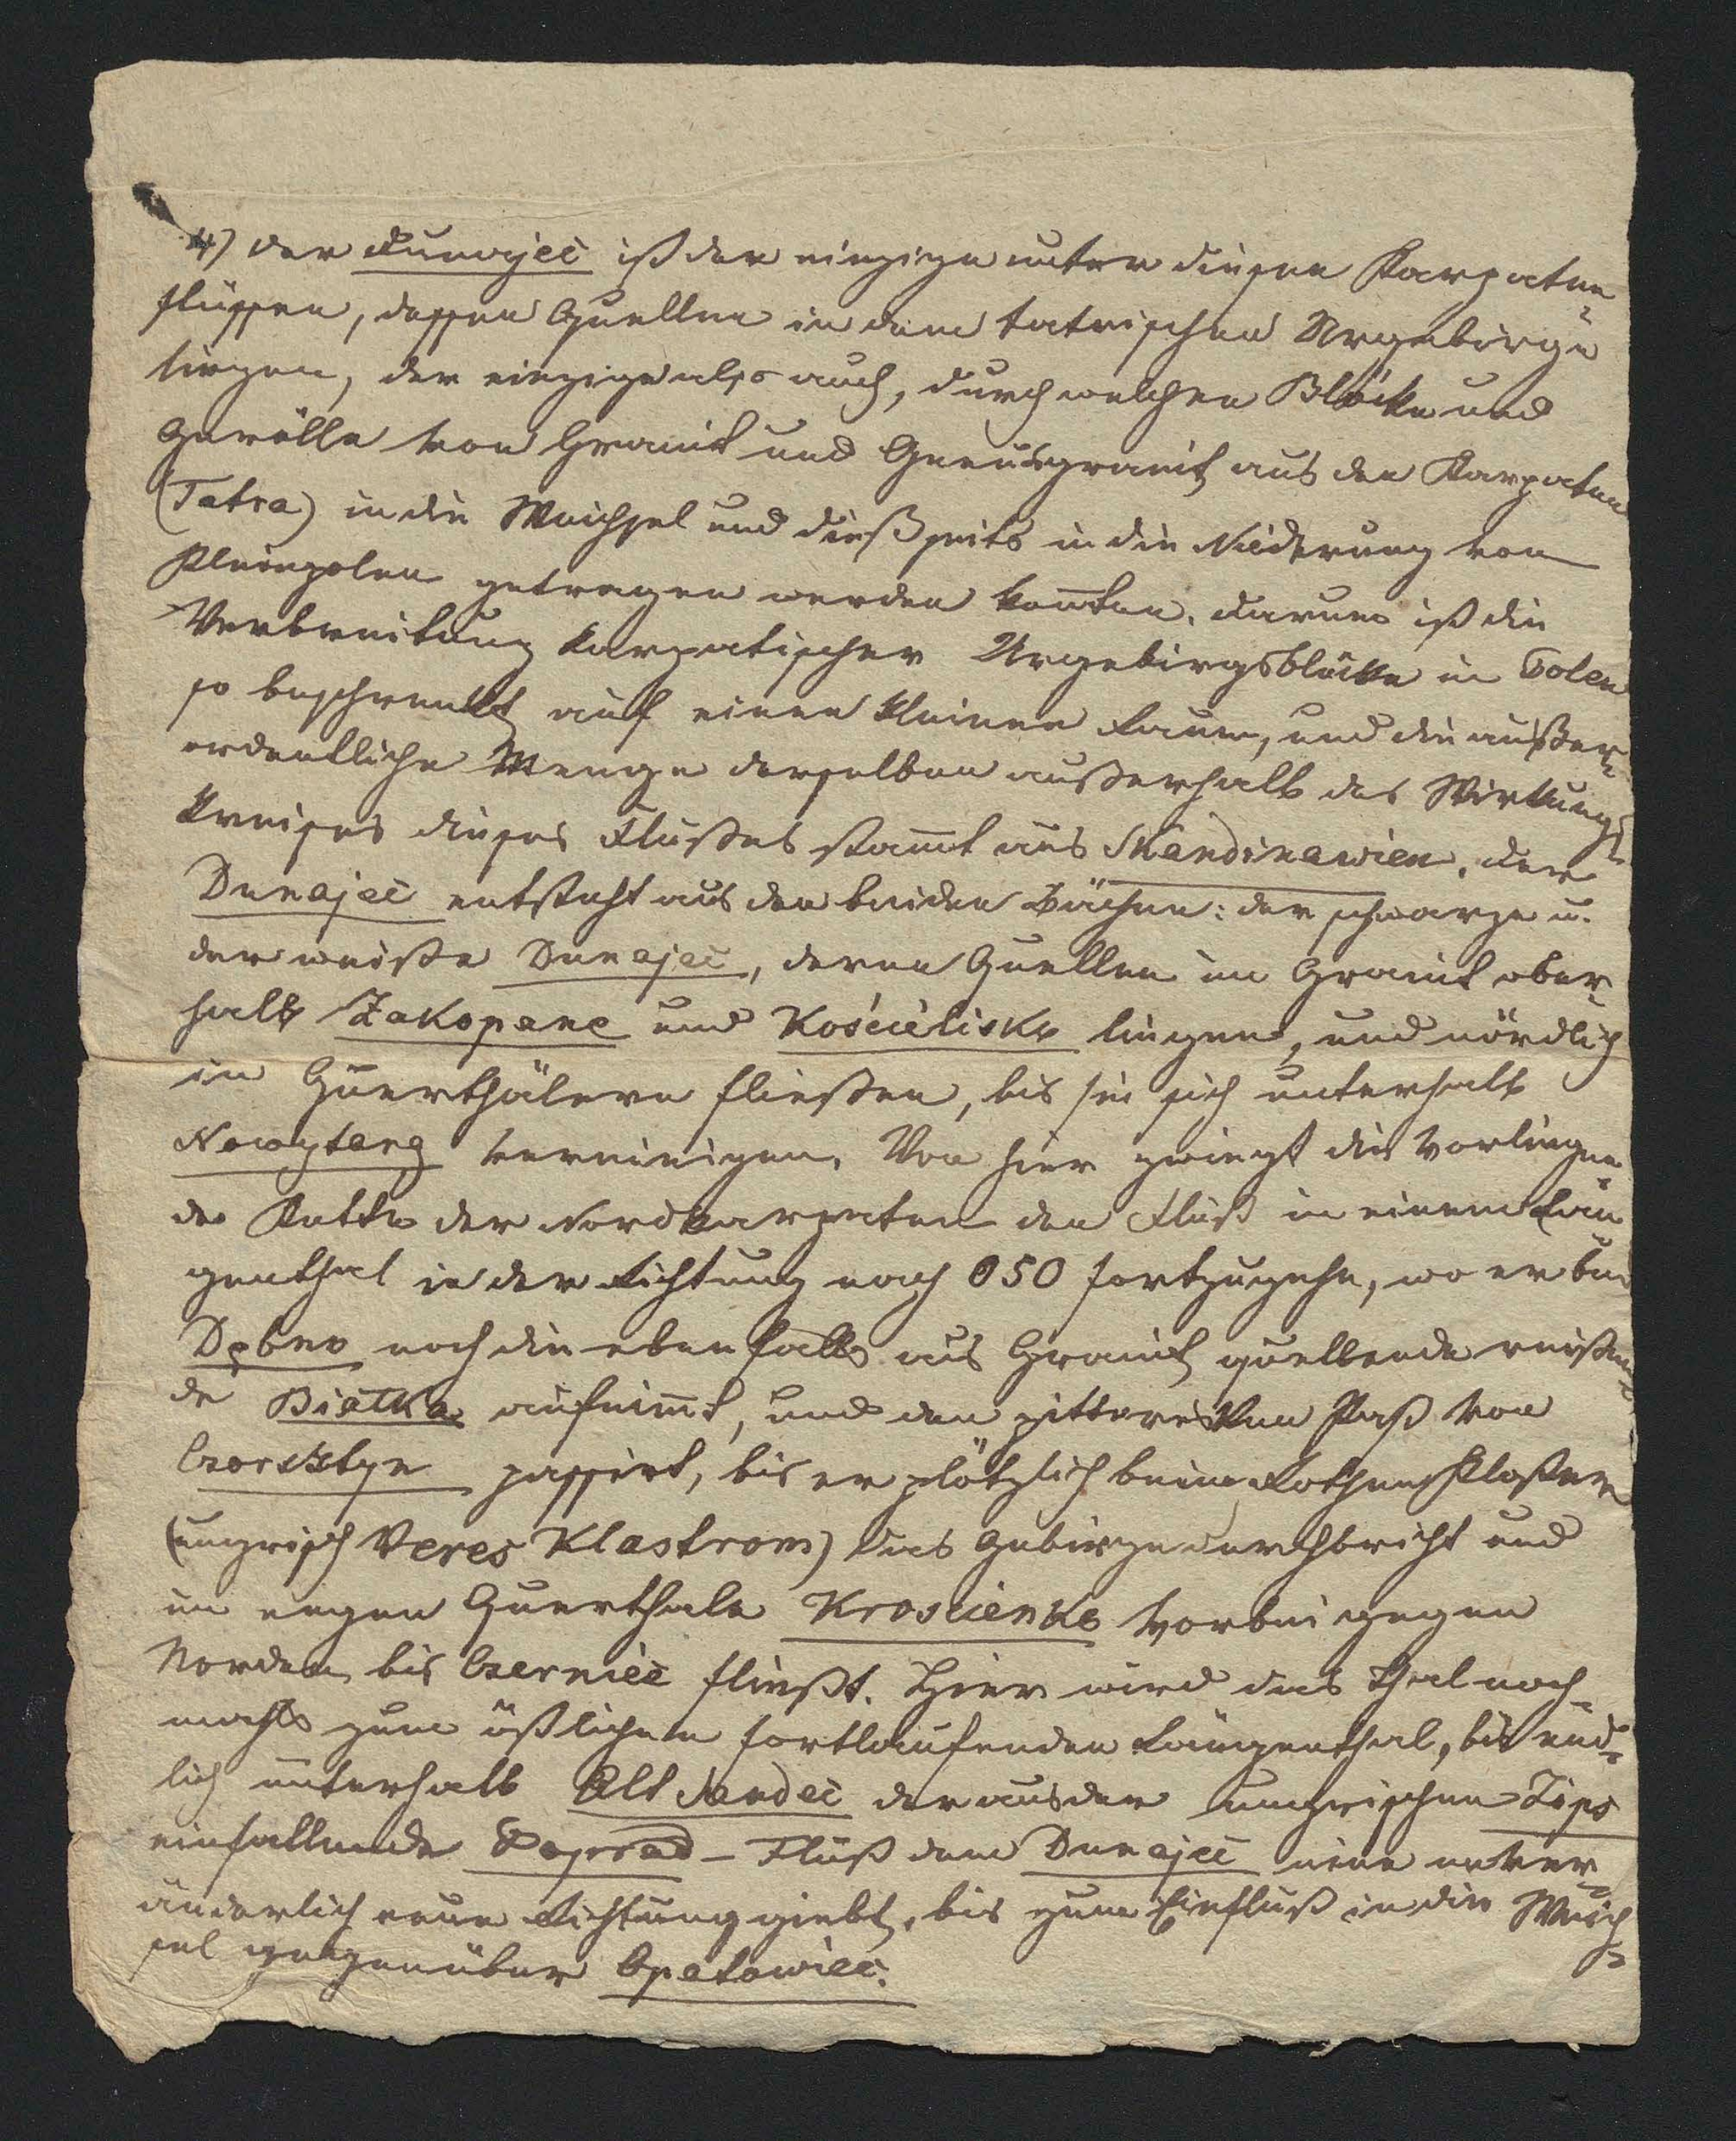 4) Der Dunajeć ist der einzige unter diesen Karpaten-
flüssen, dessen Quellen in dem tatrischen Urgebirge
liegen, der einzige also auch, durch welchen Blöcke und
Gerölle von Granit und Gneusgranit aus den Karpaten
(Tatra) in die Weichsel und dießseits in die Niederung von
Kleinpolen getragen werden konnten. Darum ist die
Verbreitung karpatischer Urgebirgsblöcke in Polen
so beschrenkt auf einen kleinen Raum, und die außer-
ordentliche Menge derselben außerhalb des Wirkungs-
kreises dieses Flußes stam̅t aus Skandinawien. Der
Dunajeć entsteht aus den beiden Bächen: der schwarze u.
der weiße Dunajeć, deren Quellen im Granit ober-
halb Zakopane und Kościelisko liegen, und nördlich
in Querthälern fließen, bis sie sich unterhalb
Nowytarg vereinigen. Von hier zwingt die vorliegen-
de Kette der Nordkarpaten den Fluß in einem Län-
genthal in der Richtung nach OSO fortzugehn, wo er bei
Dębno noch die ebenfalls aus Granit quellende reißen-
de Białka aufnim̅t, und den pittoresken Paß von
Czorsztyn passirt, bis er plötzlich beim Rothen Kloster
(ungrisch Veres Klastrom) das Gebirge durchbricht und
im engen Querthale Krościenko vorbei gegen
Norden bis Czerniec fließt. Hier wird das Thal noch-
mahls zum östlichen fortlaufenden Längenthal, bis end-
lich unterhalb Alt Sandec der aus der ungrischen Zips
einfallende Poprad-Fluß dem Dunajeć eine unver-
änderlich neue Richtung giebt, bis zum Einfluß in die Weich-
sel gegenüber Opatowiec.